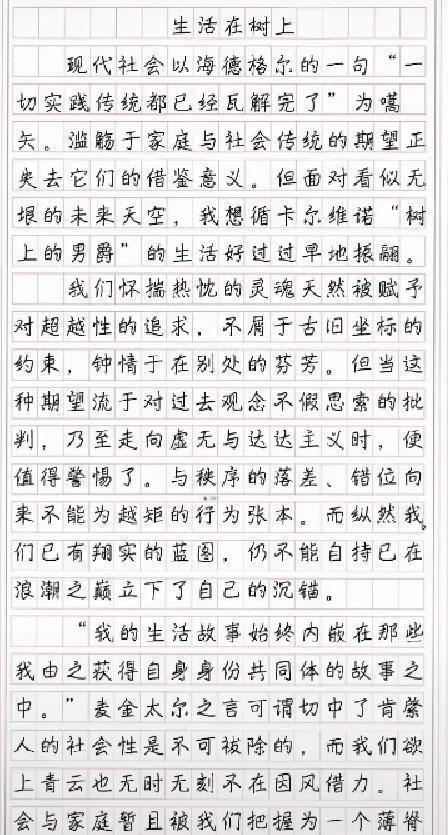 生活在树上
现代社会以海德格尔的一句“一
切实践传统都已经瓦解完了”为嚆
矢。滥觞于家庭与社会传统的期望正
失去它们的借鉴意义。但面对看似无
垠的未来天空，我想循卡尔维诺“树
上的男爵”的生活好过过早地振翮。
我们怀揣热忱的灵魂天然被赋予
对超越性的追求，不屑于古旧坐标的
约束，钟情于在别处的芬芳。但当这
种期望流于对过去观念不假思索的批
判，乃至走向虚无与达达主义时，便
值得警惕了。与秩序的落差、错位向
来不能为越矩的行为张本。而纵然我
们已有翔实的蓝图，仍不能自持已在
浪潮之巅立下了自己的沉锚。
“我的生活故事始终内嵌在那些
我由之获得自身身份共同体的故事之
中。”麦金太尔之言可谓切中了肯綮
人的社会性是不可祓除的，而我们欲
上青云也无时无刻不在因风借力。社
会与家庭暂且被我们把握为一个薄脊